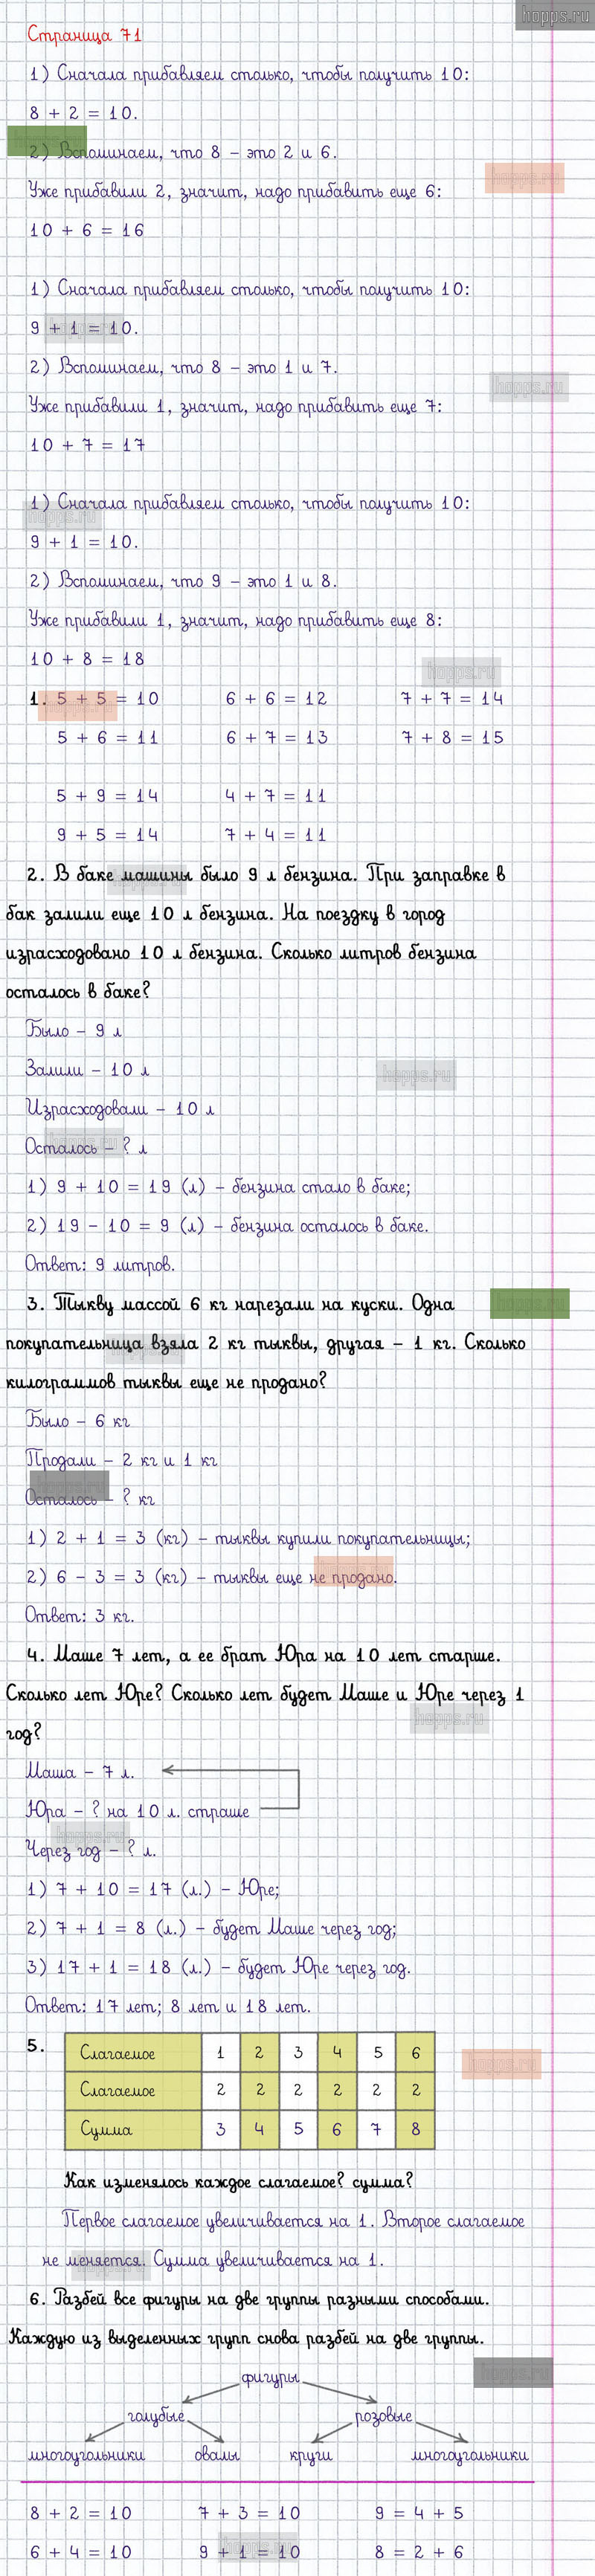 hopps.ru
Страница 71
1) Сначала прибавляем столько, чтобы получить 10:
8 + 2 = 10.
2) Вспоминаем, что 8 – это 2 и 6.
Уже прибавили 2, значит, надо прибавить еще 6:
10 + 6 = 16
1) Сначала прибавляем столько, чтобы получить 10:
9 + 1 = 10.
2) Вспоминаем, что 8 – это 1 и 7.
Уже прибавили 1, значит, надо прибавить еще 7:
10 + 7 = 17
1) Сначала прибавляем столько, чтобы получить 10:
9 + 1 = 10.
2) Вспоминаем, что 9 – это 1 и 8.
Уже прибавили 1, значит, надо прибавить еще 8:
10 + 8 = 18
1. 5 + 5 = 10 6 + 6 = 12 7 + 7 = 14
5 + 6 = 11 6 + 7 = 13 7 + 8 = 15
5 + 9 = 14 4 + 7 = 11
9 + 5 = 14 7 + 4 = 11
2. В баке машины было 9 л бензина. При заправке в
бак залили еще 10 л бензина. На поездку в город
израсходовано 10 л бензина. Сколько литров бензина
осталось в баке?
Было – 9 л
Залили – 10 л
Израсходовали – 10 л
Осталось – ? л
1) 9 + 10 = 19 (л) – бензина стало в баке;
2) 19 – 10 = 9 (л) – бензина осталось в баке.
Ответ: 9 литров.
3. Тыкву массой 6 кг нарезали на куски. Одна
покупательница взяла 2 кг тыквы, другая – 1 кг. Сколько
килограммов тыквы еще не продано?
Было – 6 кг
Продали – 2 кг и 1 кг
Осталось – ? кг
1) 2 + 1 = 3 (кг) – тыквы купили покупательницы;
2) 6 – 3 = 3 (кг) – тыквы еще не продано.
Ответ: 3 кг.
4. Маше 7 лет, а ее брат Юра на 10 лет старше.
Сколько лет Юре? Сколько лет будет Маше и Юре через 1
год?
Маша – 7 л.
Юра – ? на 10 л. страше
Через год – ? л.
1) 7 + 10 = 17 (л.) – Юре;
2) 7 + 1 = 8 (л.) – будет Маше через год;
3) 17 + 1 = 18 (л.) – будет Юре через год.
Ответ: 17 лет; 8 лет и 18 лет.
5. Слагаемое 1 2 3 4 5 6
Слагаемое 2 2 2 2 2 2
Сумма 3 4 5 6 7 8
Как изменялось каждое слагаемое? сумма?
Первое слагаемое увеличивается на 1. Второе слагаемое
не меняется. Сумма увеличивается на 1.
6. Разбей все фигуры на две группы разными способами.
Каждую из выделенных групп снова разбей на две группы.
фигуры
голубые розовые
многоугольники овалы круги многоугольники
8 + 2 = 10 7 + 3 = 10 9 = 4 + 5
6 + 4 = 10 9 + 1 = 10 8 = 2 + 6